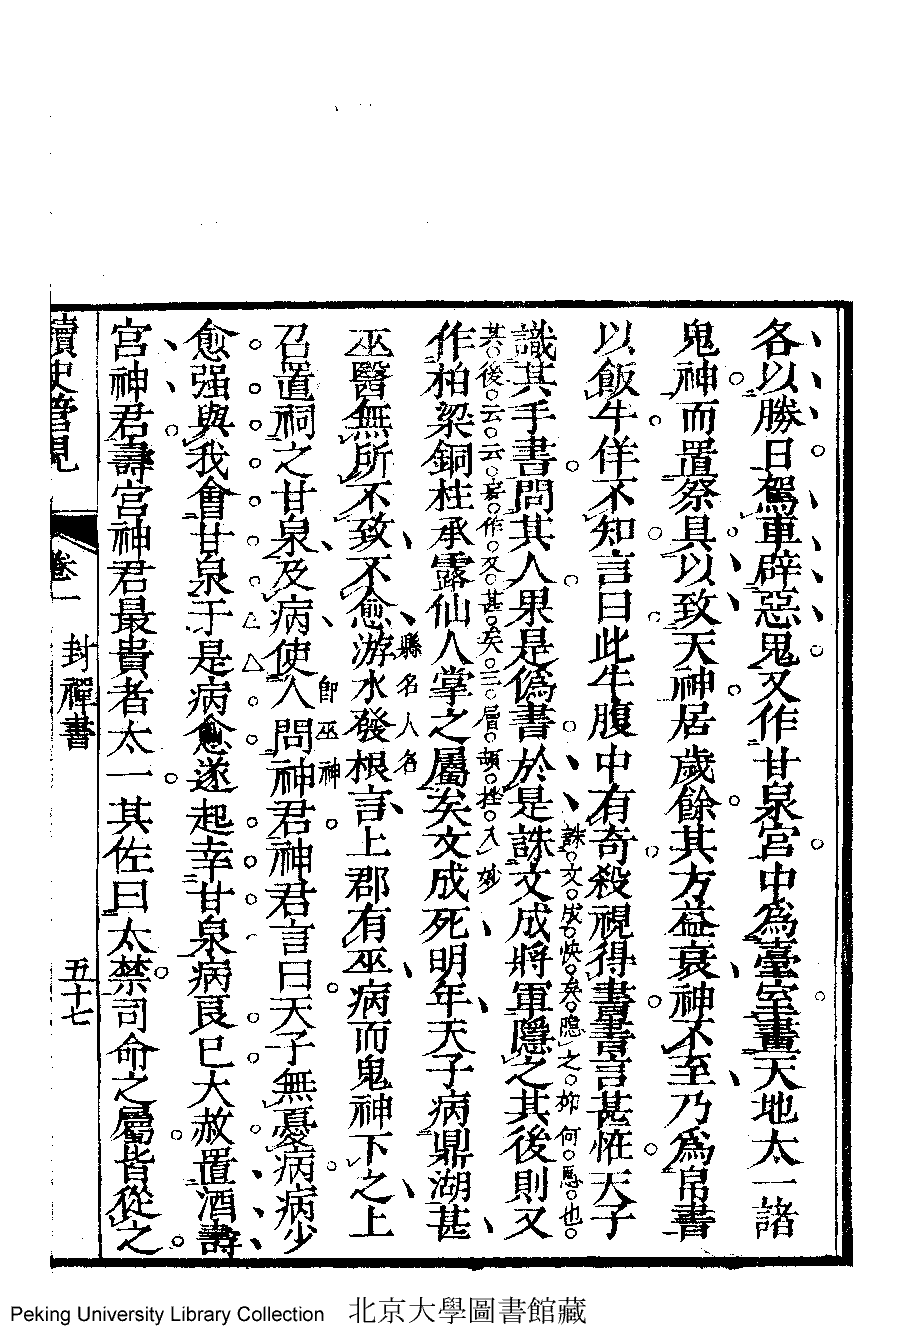 各以勝日駕車辟惡鬼又作甘泉宮中為臺室畫天地太一諸
鬼神而置祭具以致天神居歲餘其方益衰神不至乃為帛書
以飯牛佯不知言曰此牛腹中有奇殺視得書書言甚怪天子
誅文成快矣隱之抑何愚也
識其手書問其人果是偽書於是誅文成將軍隱之其後則又
其後云云喜作又甚矣三層頓挫入妙
作柏梁銅柱承露仙人掌之屬矣文成死明年天子病鼎湖甚
巫醫無所不致不愈游水發根言上郡有巫病而鬼神下之上
縣名人名
召置祠之甘泉及病使人問神君神君言曰天子無憂病病少
卽巫神
愈强與我會甘泉于是病愈遂起幸甘泉病良已大赦置酒壽
宮神君壽宮神君最貴者太一其佐曰太禁司命之屬皆從之
讀史管見
卷一
封禪書
五十七
Peking University Library Collection 北京大學圖書館藏